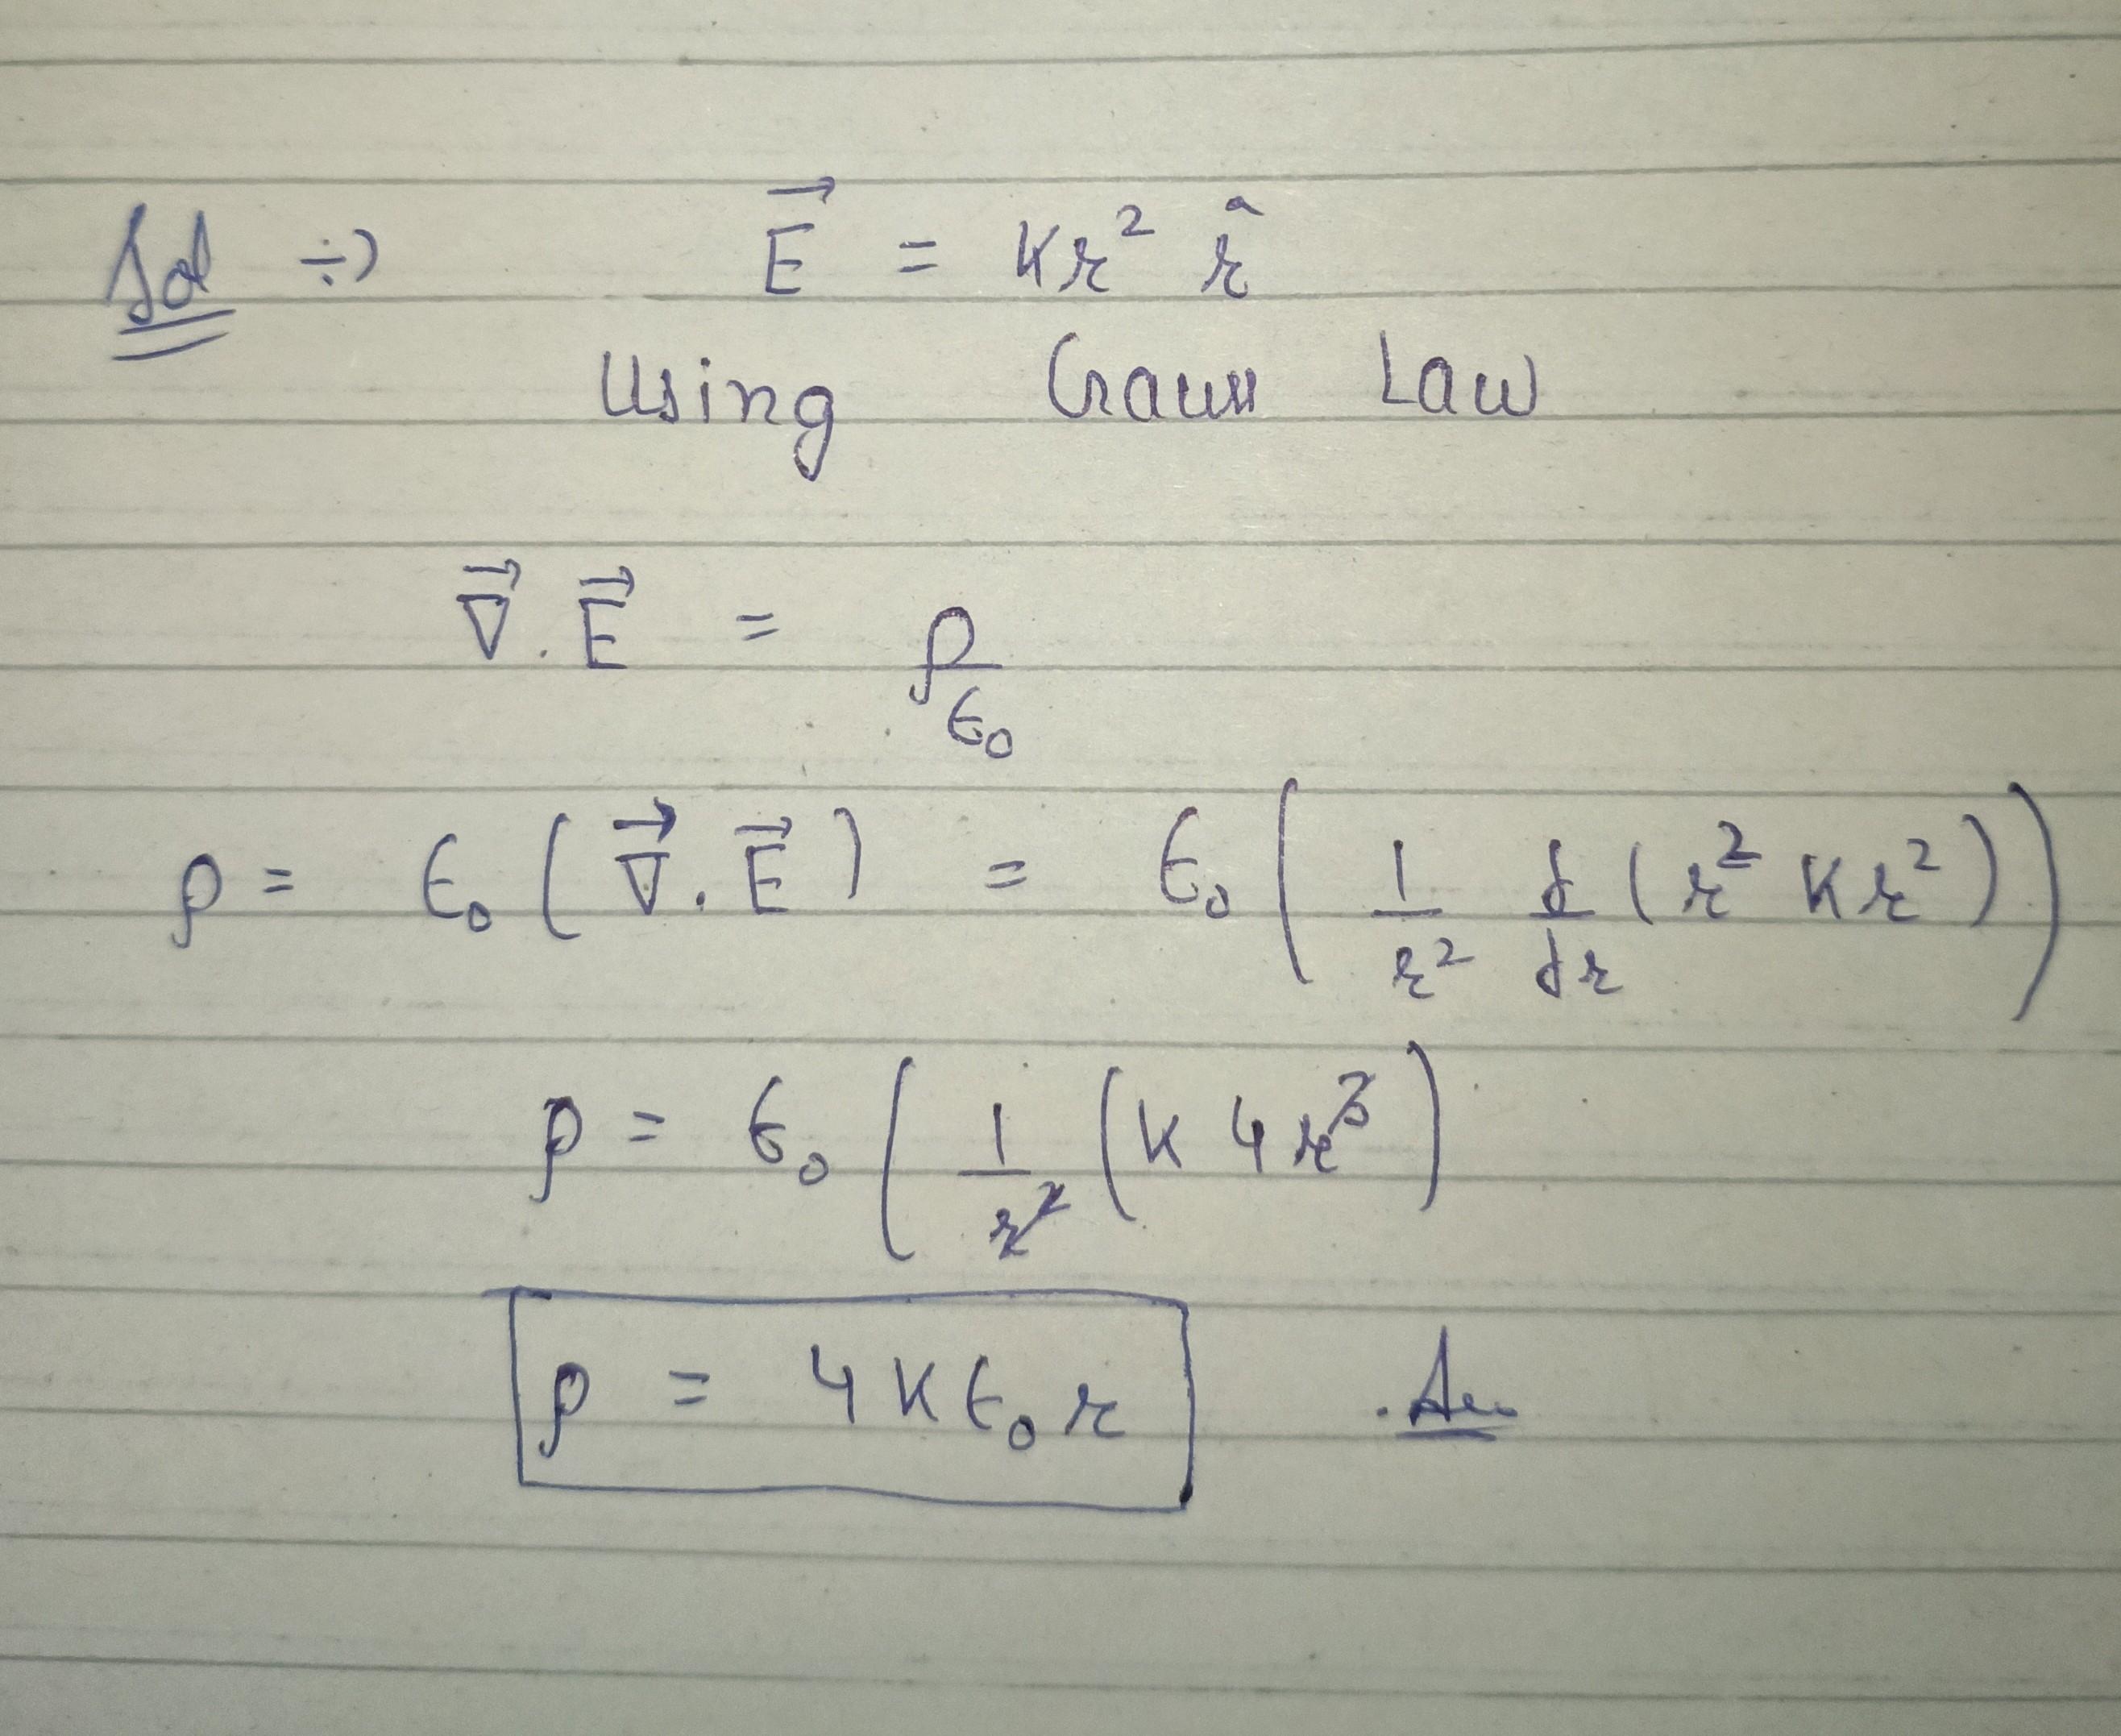 Sol ÷) E⃗ = Kr² r̂
Using Gauss Law
∇⃗ . E⃗ = ρ/ϵ₀
ρ = ϵ₀ ( ∇⃗ . E⃗ ) = ϵ₀ ( 1/r² d/dr ( r² K r² ) )
ρ = ϵ₀ ( 1/r² ( K 4 r³ )
ρ = 4 K ϵ₀ r Ans